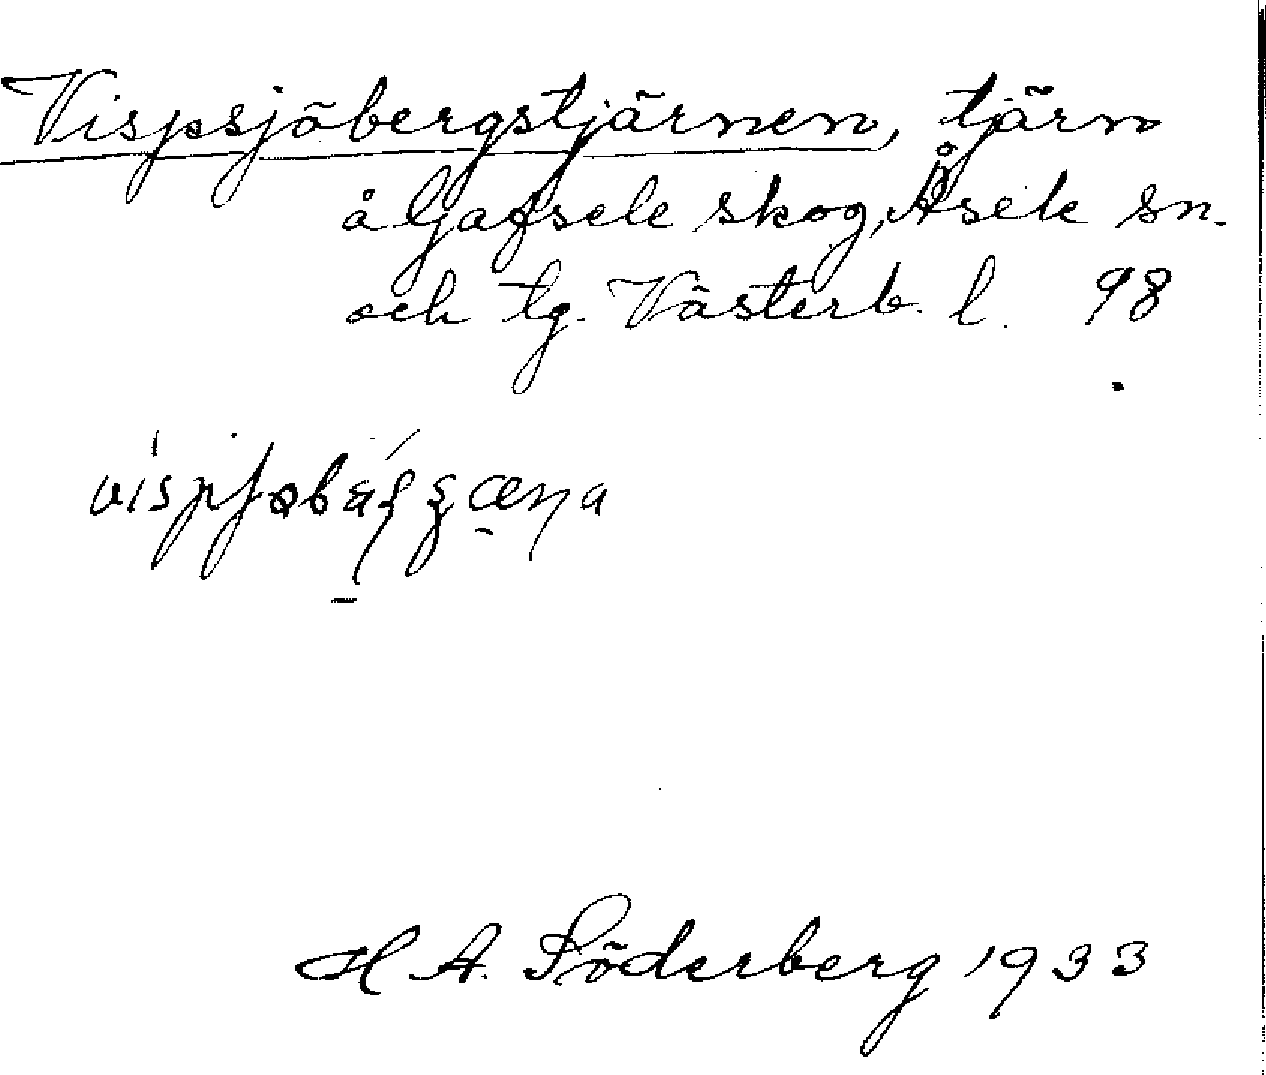 Vispsjöbergstjärnen, tjärn
å Gafsele skog, Åsele sn.
och tg. Västerb. l. 98
H A. Söderberg 1933